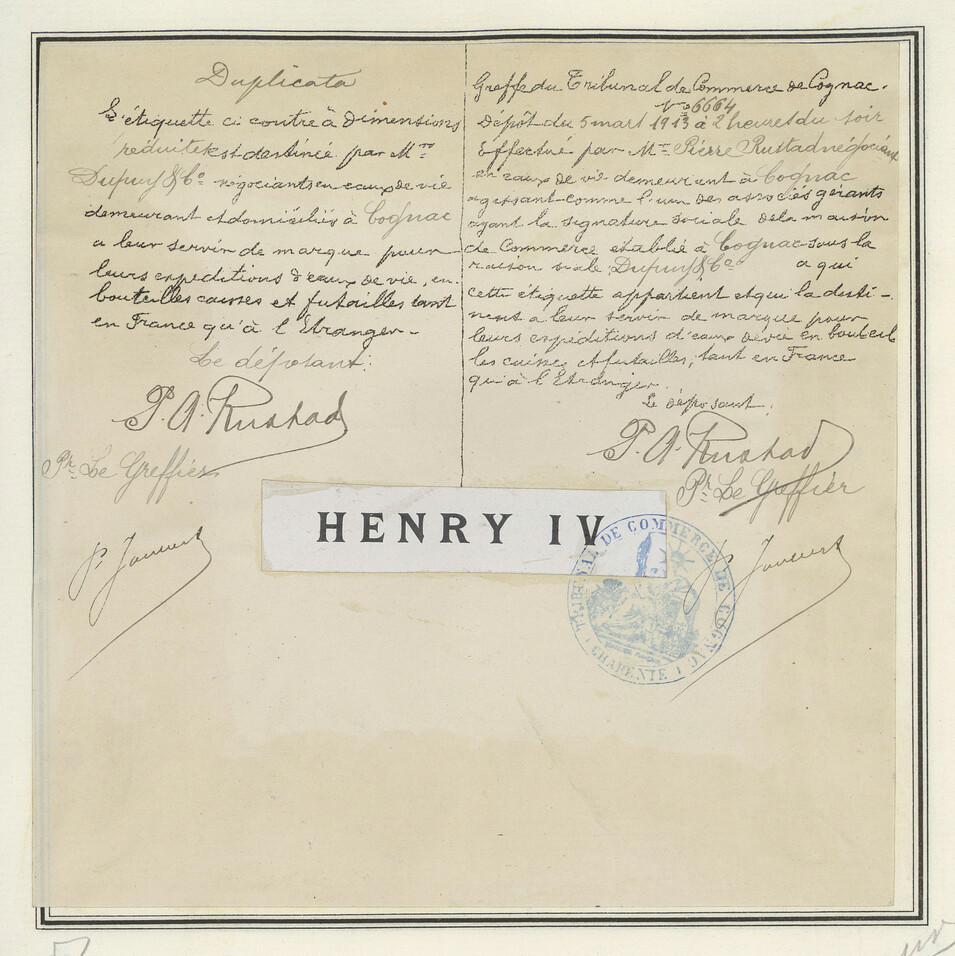 Duplicata
L'étiquette ci contre à dimensions
réduites est destinée par Mrs
Dupuy & Co négociants en eaux de vie
demeurant et domiciliés à Cognac
a leur servir de marque pour
leurs expeditions d'eaux de vie, en
bouteilles caisses et futailles tant
en France qu'à l'Etranger-
Le déposant:
P. A. Rustad
Pr. Le Greffier
Greffe du Tribunal de Commerce de Cognac.
No 6664
Dépôt du 5 mars 1913 à 2 heures du soir
Effectué par Mr. Pierre Rustad négociant
en eaux de vie demeurant à Cognac
agissant comme l'un des associés gérants
ayant la signature sociale de la maison
de Commerce etablie à Cognac sous la
raison siale Dupuy & Co a qui
cette étiquette appartient et qui la desti-
nent a leur servir de marque pour
leurs expéditions d'eaux de vie en bouteil
les caisses et futailles, tant en France
qu'à l'Etranger.
Le déposant:
P. A. Rustad
Pr. Le Greffier
HENRY IV
TRIBUNAL DE COMMERCE DE COGNAC
CHARENTE